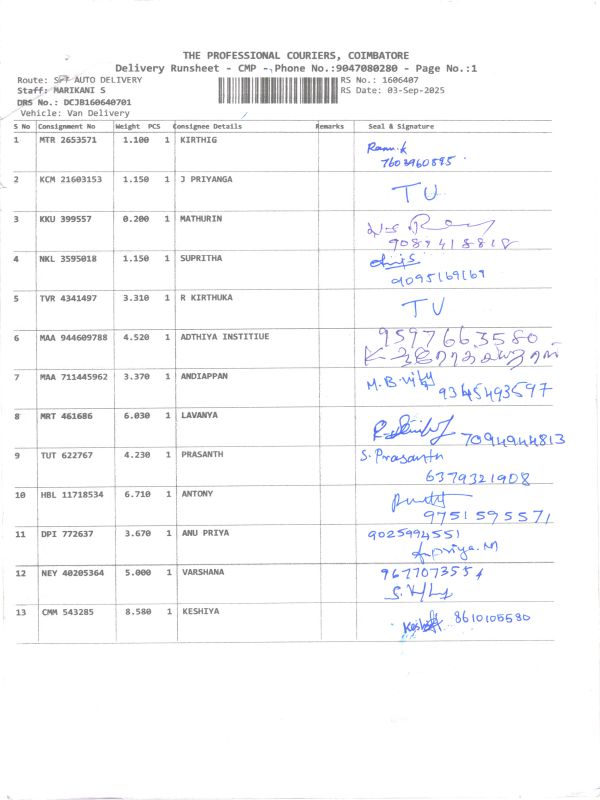 THE PROFESSIONAL COURIERS, COIMBATORE
Delivery Runsheet - CMP - Phone No.:9047080280 - Page No.:1
Route: SFF AUTO DELIVERY RS No.: 1606407
Staff: MARIKANI S RS Date: 03-Sep-2025
DRS No.: DCJB160640701
Vehicle: Van Delivery
S No Consignment No Weight PCS Consignee Details Remarks Seal & Signature
1 MTR 2653571 1.100 1 KIRTHIG
7603960895
2 KCM 21603153 1.150 1 J PRIYANGA TU
3 KKU 399557 0.200 1 MATHURIN
9089418818
4 NKL 3595018 1.150 1 SUPRITHA
9095169169
5 TVR 4341497 3.310 1 R KIRTHUKA TU
6 MAA 944609788 4.520 1 ADTHIYA INSTITIUE 9597663580
7 MAA 711445962 3.370 1 ANDIAPPAN M.B. 9345493597
8 MRT 461686 6.030 1 LAVANYA 7094944813
9 TUT 622767 4.230 1 PRASANTH S. Prasanth
6379321908
10 HBL 11718534 6.710 1 ANTONY
9751595571
11 DPI 772637 3.670 1 ANU PRIYA 9025994551
12 NEY 40205364 5.000 1 VARSHANA 9677073554
13 CMM 543285 8.580 1 KESHIYA 8610105580